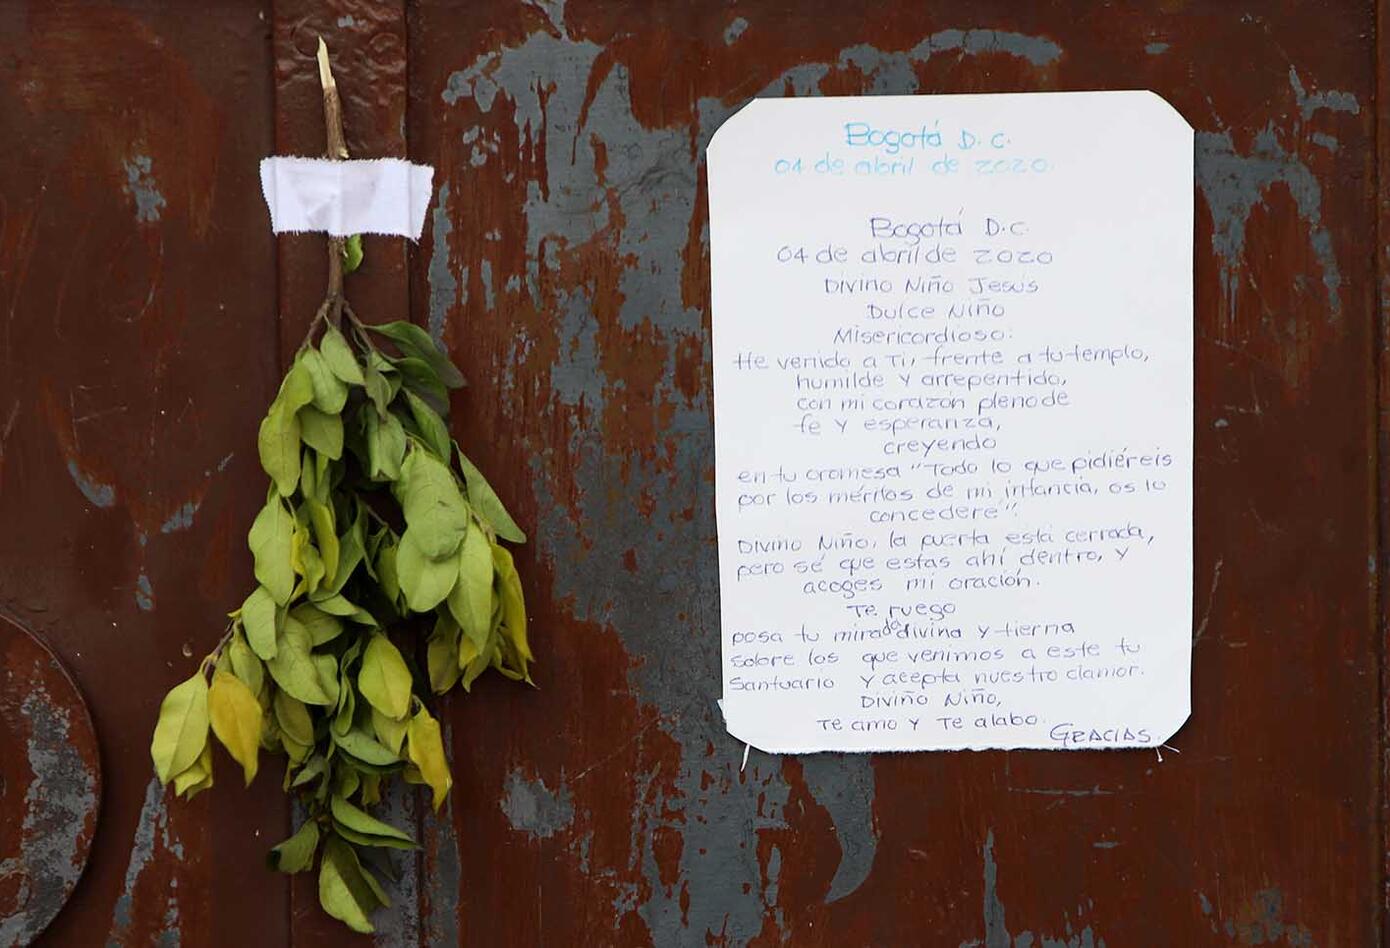 Bogotá D.C.
04 de abril de 2020
Bogotá D.C
04 de abril de 2020
Divino Niño Jesús
Dulce Niño
Misericordioso:
He venido a Ti, frente a tu templo,
humilde y arrepentido,
con mi corazón pleno de
fe y esperanza,
creyendo
en tu promesa "Todo lo que pidiéreis
por los méritos de mi infancia, os lo
concedere".
Divino Niño, la puerta está cerrada,
pero sé que estas ahí dentro, y
acoges mi oración.
Te ruego
posa tu mirada divina y tierna
sobre los que venimos a este tu
Santuario y acepta nuestro clamor.
Diviño Niño,
Te amo y Te alabo.
GRACIAS.